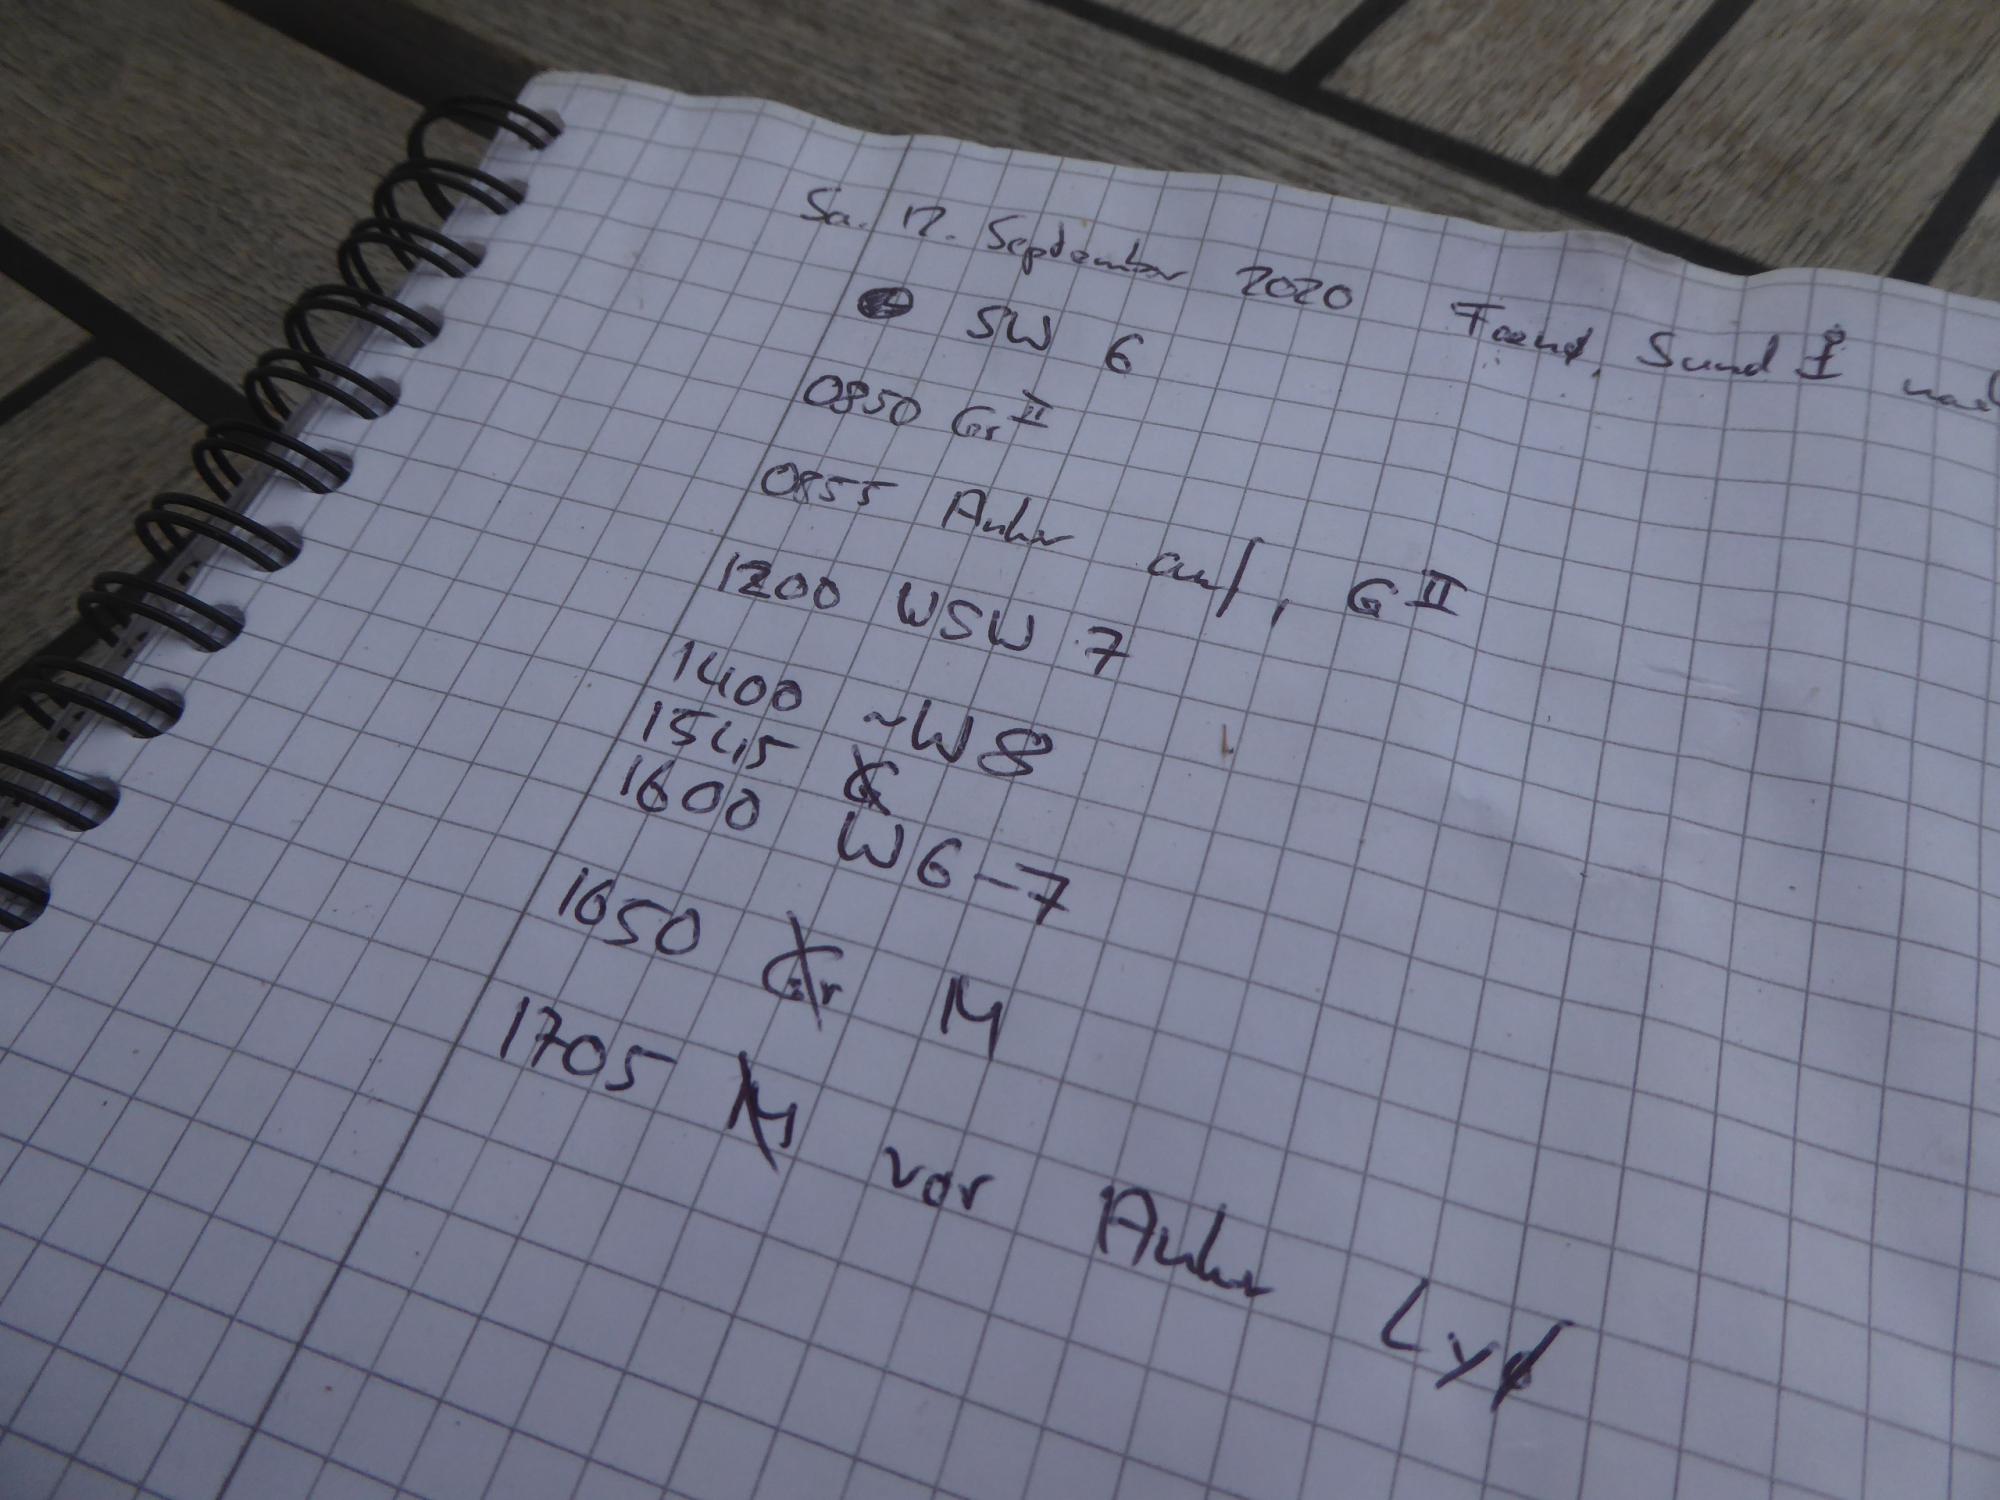 Sa. 12. September 2020 Faenø Sund
SW 6
0850 Gr II
0855 Anker auf, G II
1200 WSW 7
1400 ~W 8
1545 G
1600 W 6-7
1650 Gr M
1705 M vor Anker Lyø